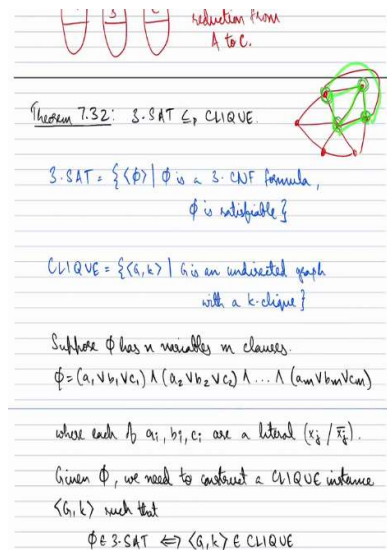 B C
reduction from
A to C.
Theorem 7.32: 3-SAT ≤p CLIQUE.
3-SAT = {⟨ϕ⟩ | ϕ is a 3-CNF formula,
ϕ is satisfiable}
CLIQUE = {⟨G, k⟩ | G is an undirected graph
with a k-clique}
Suppose ϕ has n variables m clauses.
ϕ = (a₁ ∨ b₁ ∨ c₁) ∧ (a₂ ∨ b₂ ∨ c₂) ∧ ... ∧ (am ∨ bm ∨ cm)
where each of ai, bi, ci are a literal (xj / x̄j).
Given ϕ, we need to construct a CLIQUE instance
⟨G, k⟩ such that
ϕ ∈ 3-SAT ⟺ ⟨G, k⟩ ∈ CLIQUE